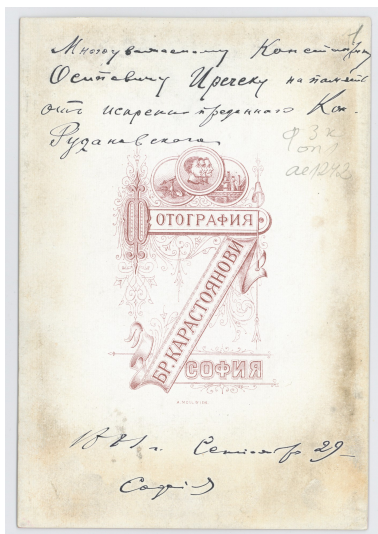 Многоуважаемому Константину
Осиповичу Иречеку на память
отъ искренно преданного Кон.
Рудановского
ф 3к
оп 1
ае 1242
ФОТОГРАФИЯ
БР. КАРАСТОЯНОВИ
СОФИЯ
г. Септемвр 29
София